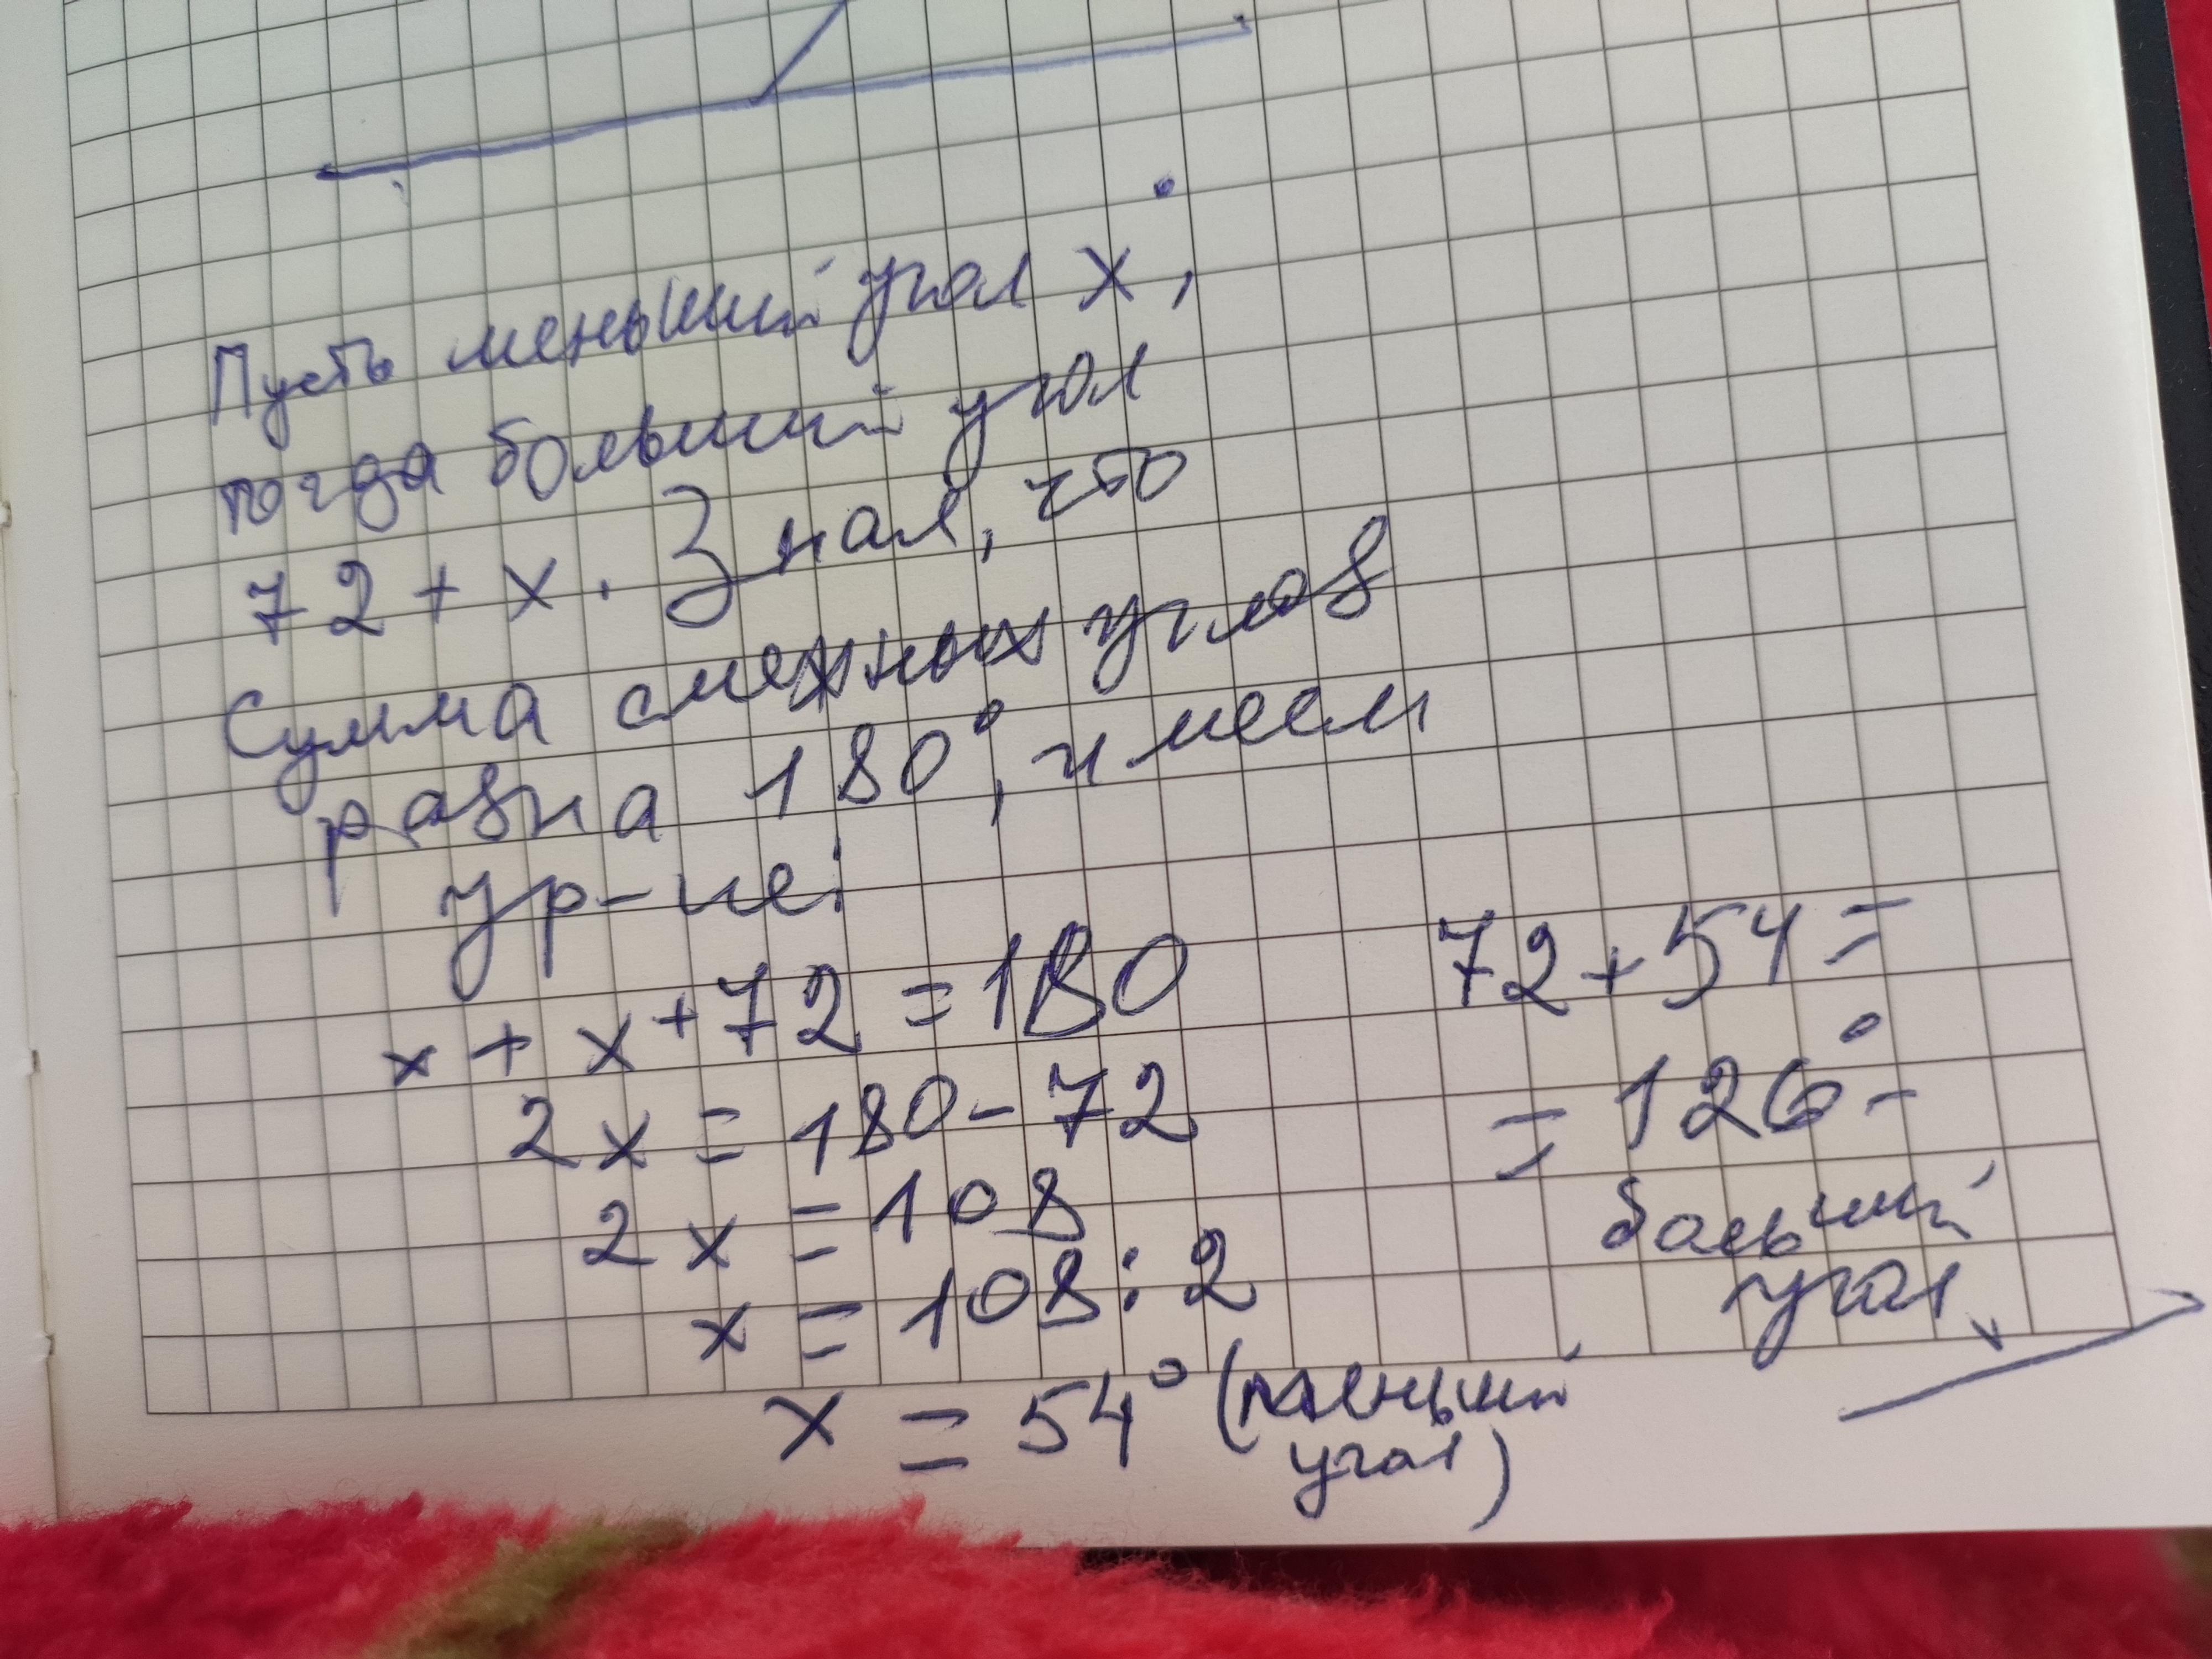 Пусть меньший угол x°,
тогда больший угол
72 + x. Зная, что
сумма смежных углов
равна 180°, имеем
ур-ие:
x + x + 72 = 180
2x = 180 - 72
2x = 108
x = 108 : 2
x = 54° (меньший
угол)
72 + 54 =
= 126° -
больший
угол